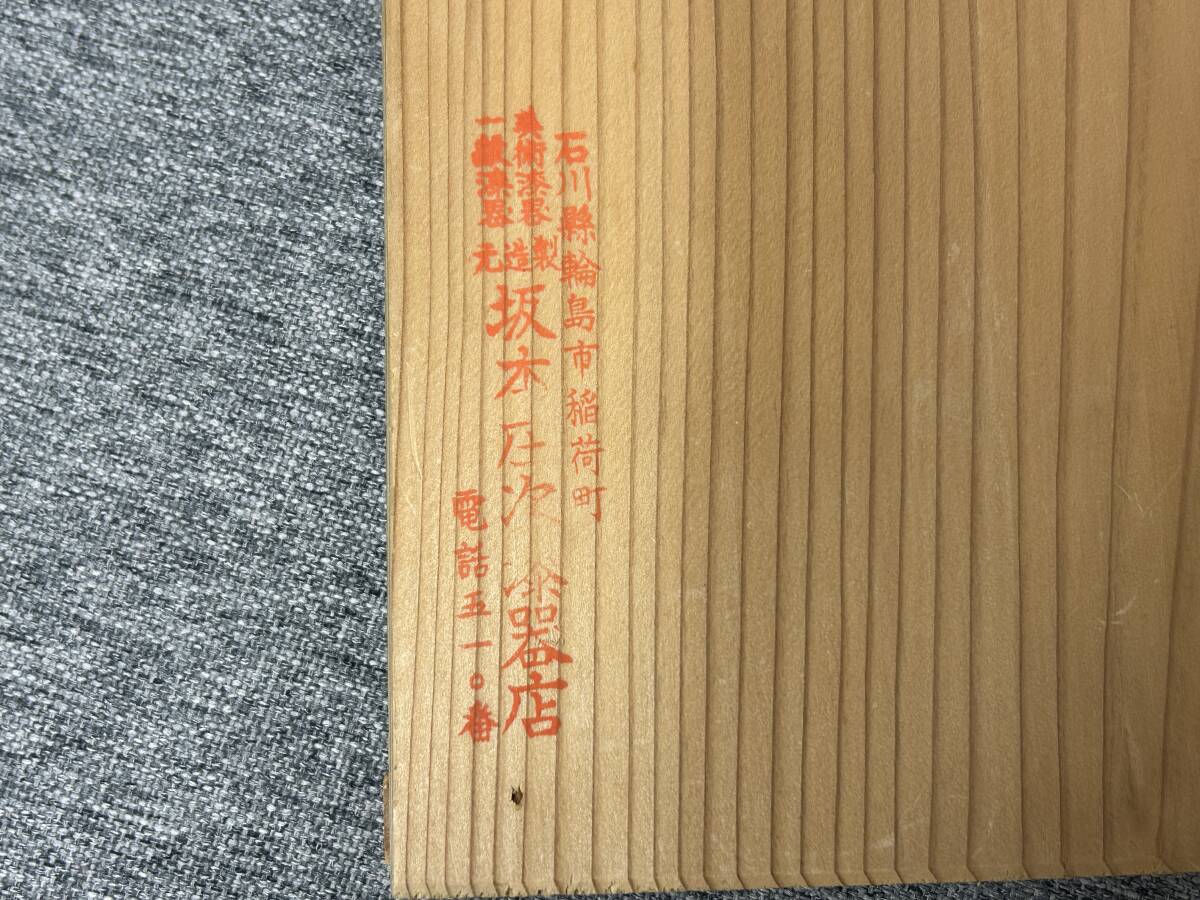 石川縣輪島市稲荷町
美術漆器
一般漆器
製造元
坂本庄次漆器店
電話五一〇番